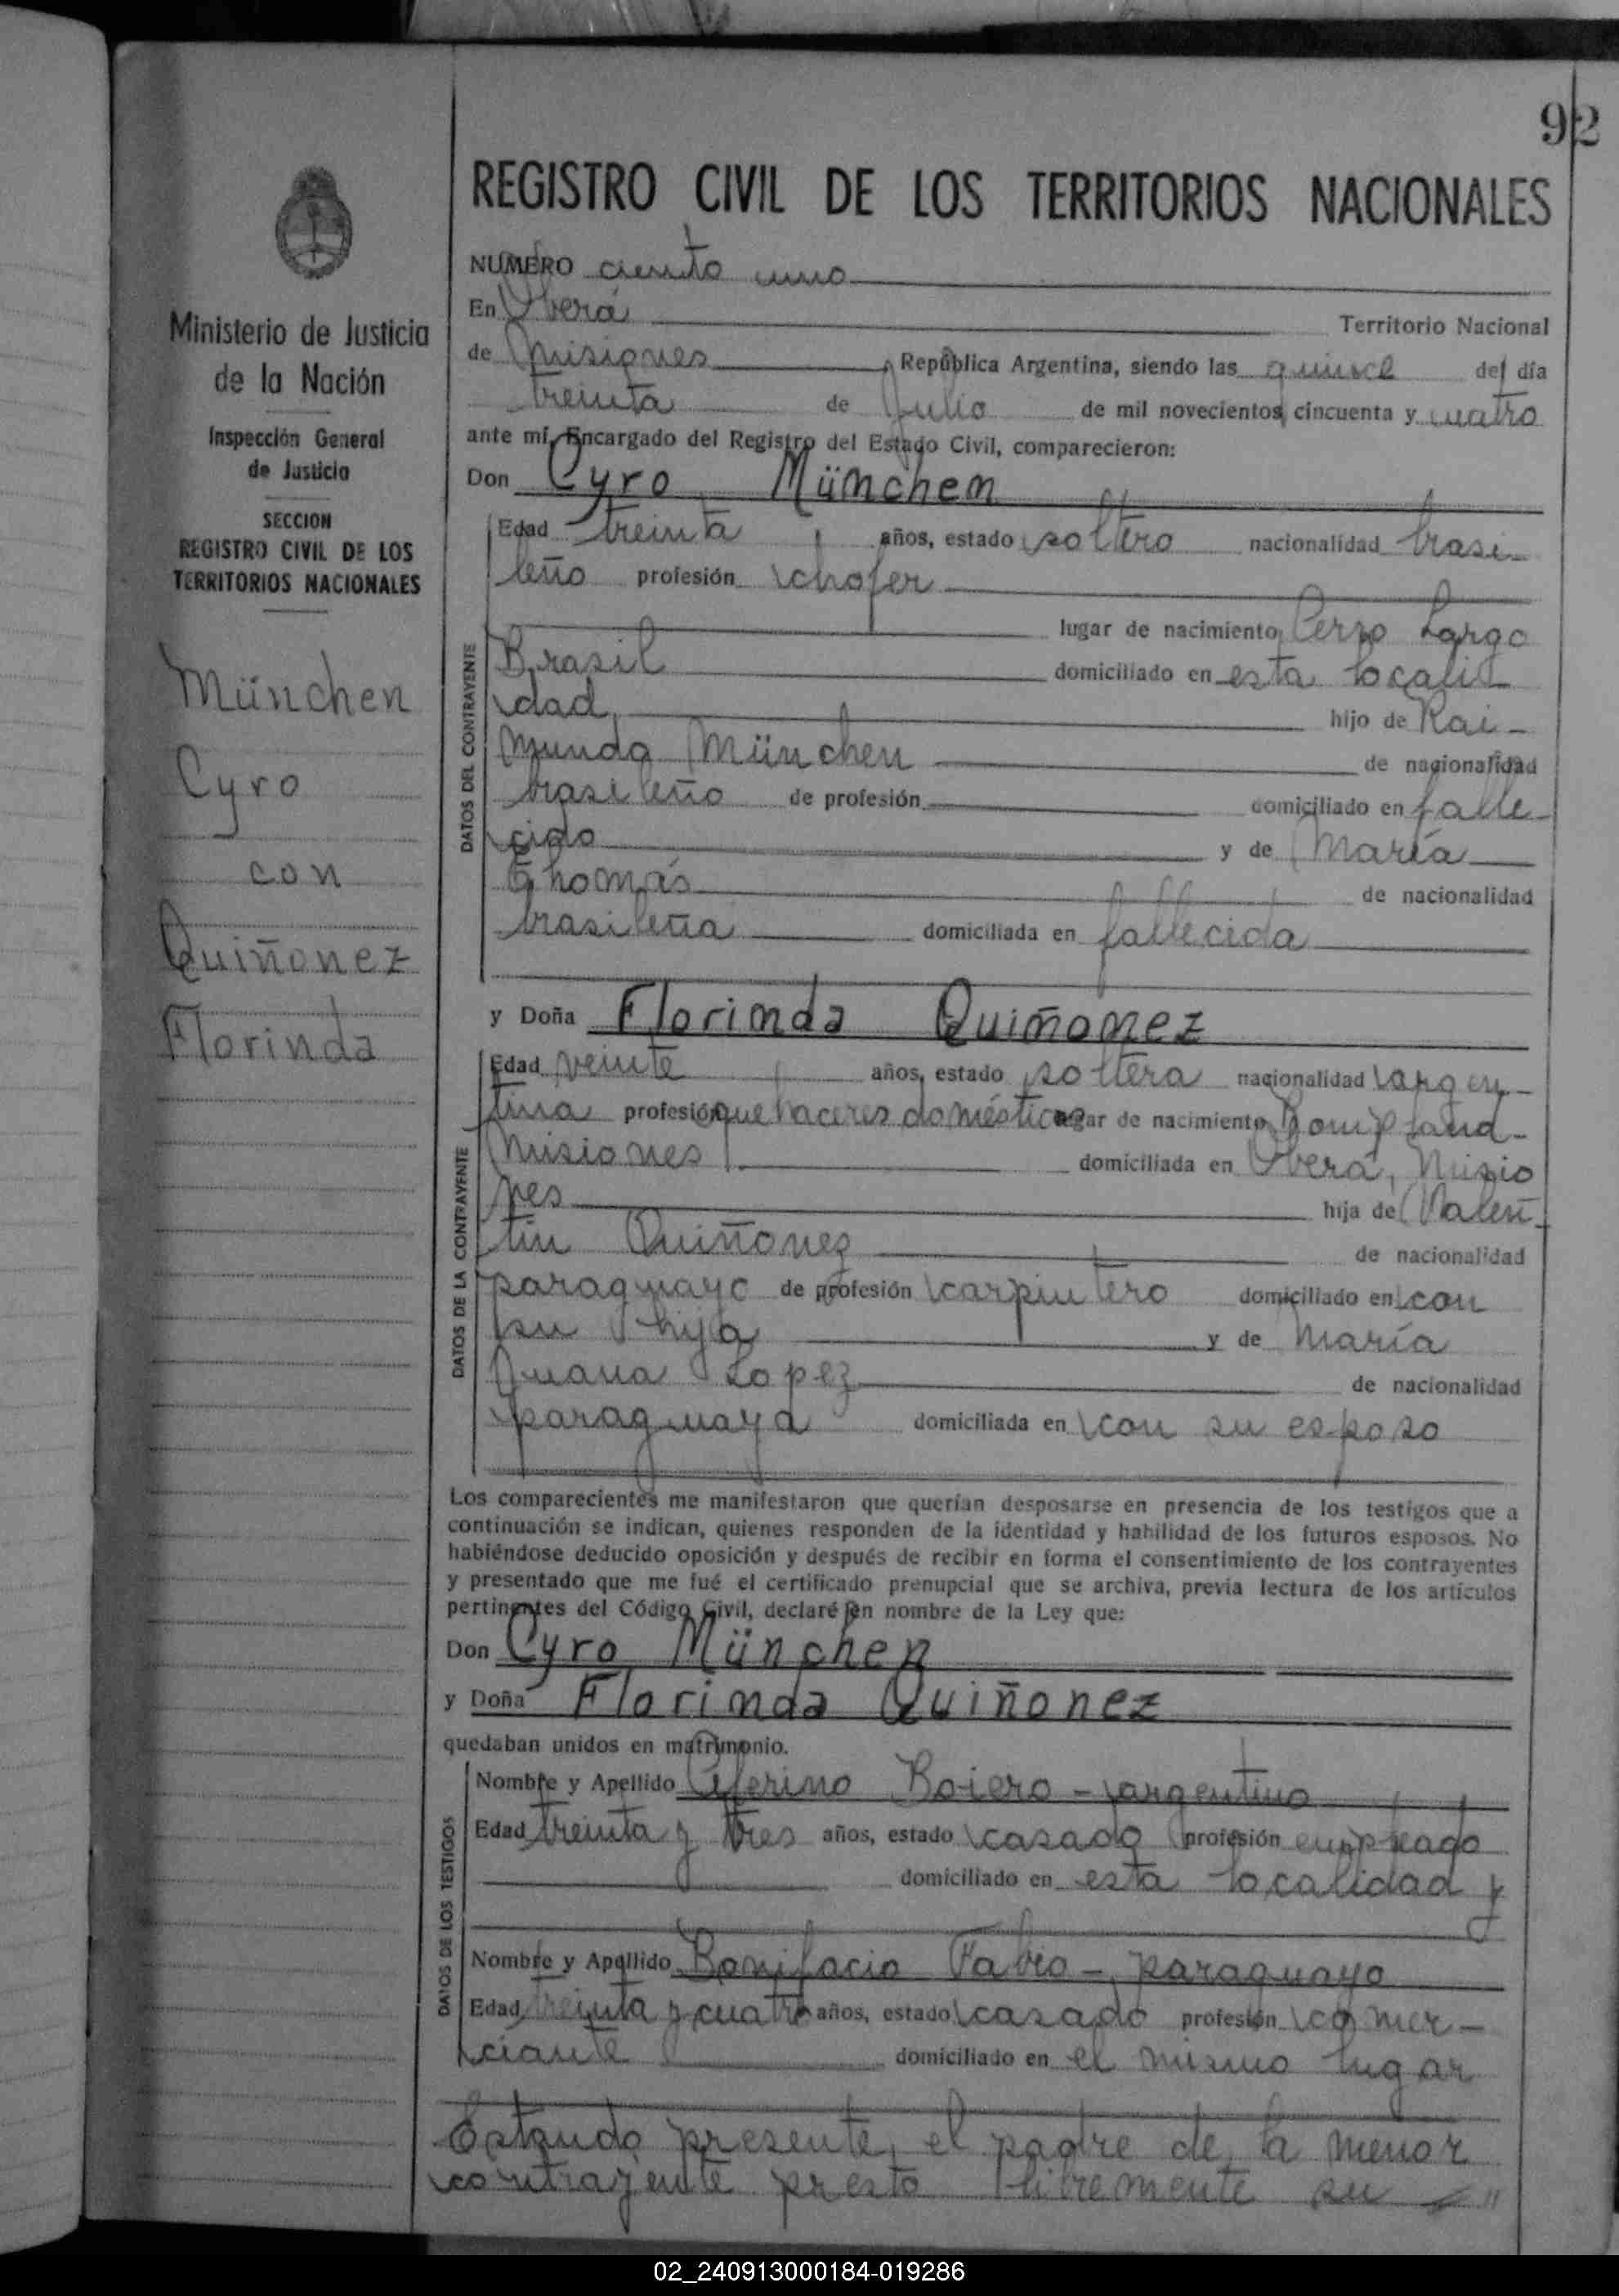 92
REGISTRO CIVIL DE LOS TERRITORIOS NACIONALES
Ministerio de Justicia
de la Nación
Inspección General
de Justicia
SECCION
REGISTRO CIVIL DE LOS
TERRITORIOS NACIONALES
München
Cyro
con
Quiñonez
Florinda
NUMERO ciento uno
En Oberá Territorio Nacional
de Misiones, República Argentina, siendo las quince del día
treinta de Julio de mil novecientos cincuenta y cuatro
ante mí, Encargado del Registro del Estado Civil, comparecieron:
Don Cyro München
DATOS DEL CONTRAYENTE
Edad treinta años, estado soltero nacionalidad brasi-
leño profesión chofer
lugar de nacimiento Cerro Largo
Brasil domiciliado en esta locali-
dad, hijo de Rai-
mundo München de nacionalidad
brasileño de profesión domiciliado en falle-
cido y de María
Thomás de nacionalidad
brasileña domiciliada en fallecida
y Doña Florinda Quiñonez
DATOS DE LA CONTRAYENTE
Edad veinte años, estado soltera nacionalidad argen-
tina profesión quehaceres domésticos lugar de nacimiento Bompland-
Misiones domiciliada en Oberá, Misio
nes hija de Valen-
tín Quiñonez de nacionalidad
paraguayo de profesión carpintero domiciliado en con
su hija y de María
Juana Lopez de nacionalidad
paraguaya domiciliada en con su esposo
Los comparecientes me manifestaron que querían desposarse en presencia de los testigos que a
continuación se indican, quienes responden de la identidad y habilidad de los futuros esposos. No
habiéndose deducido oposición y después de recibir en forma el consentimiento de los contrayentes
y presentado que me fué el certificado prenupcial que se archiva, previa lectura de los artículos
pertinentes del Código Civil, declaré en nombre de la Ley que:
Don Cyro München
y Doña Florinda Quiñonez
quedaban unidos en matrimonio.
DATOS DE LOS TESTIGOS
Nombre y Apellido Ceferino Boiero - argentino
Edad treinta y tres años, estado casado profesión empleado
domiciliado en esta localidad y
Nombre y Apellido Bonifacio Fabio - paraguayo
Edad treinta y cuatro años, estado casado profesión comer-
ciante domiciliado en el mismo lugar
Estando presente, el padre de la menor
contrayente presto libremente su "
02_240913000184-019286